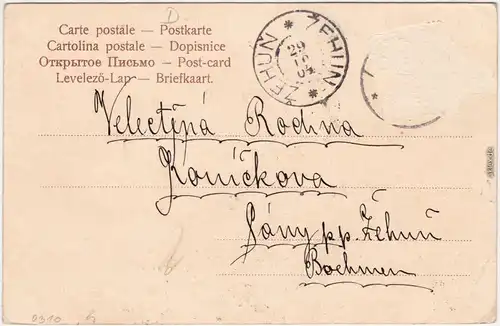 D.
Carte postale — Postkarte
Cartolina postale — Dopisnice
Открытое Письмо — Post-card
Levelező-Lap — Briefkaart.
ŽEHUŇ * ŽEHUŇ *
29
04
Velectěná Rodina
Koníčkova
Sány pp. Žehuň
Boehmen